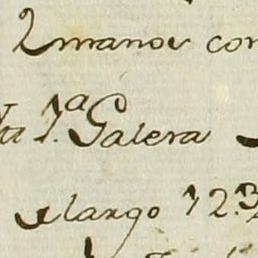 2 manos con
ta 1.ª Galera
largo 12.3